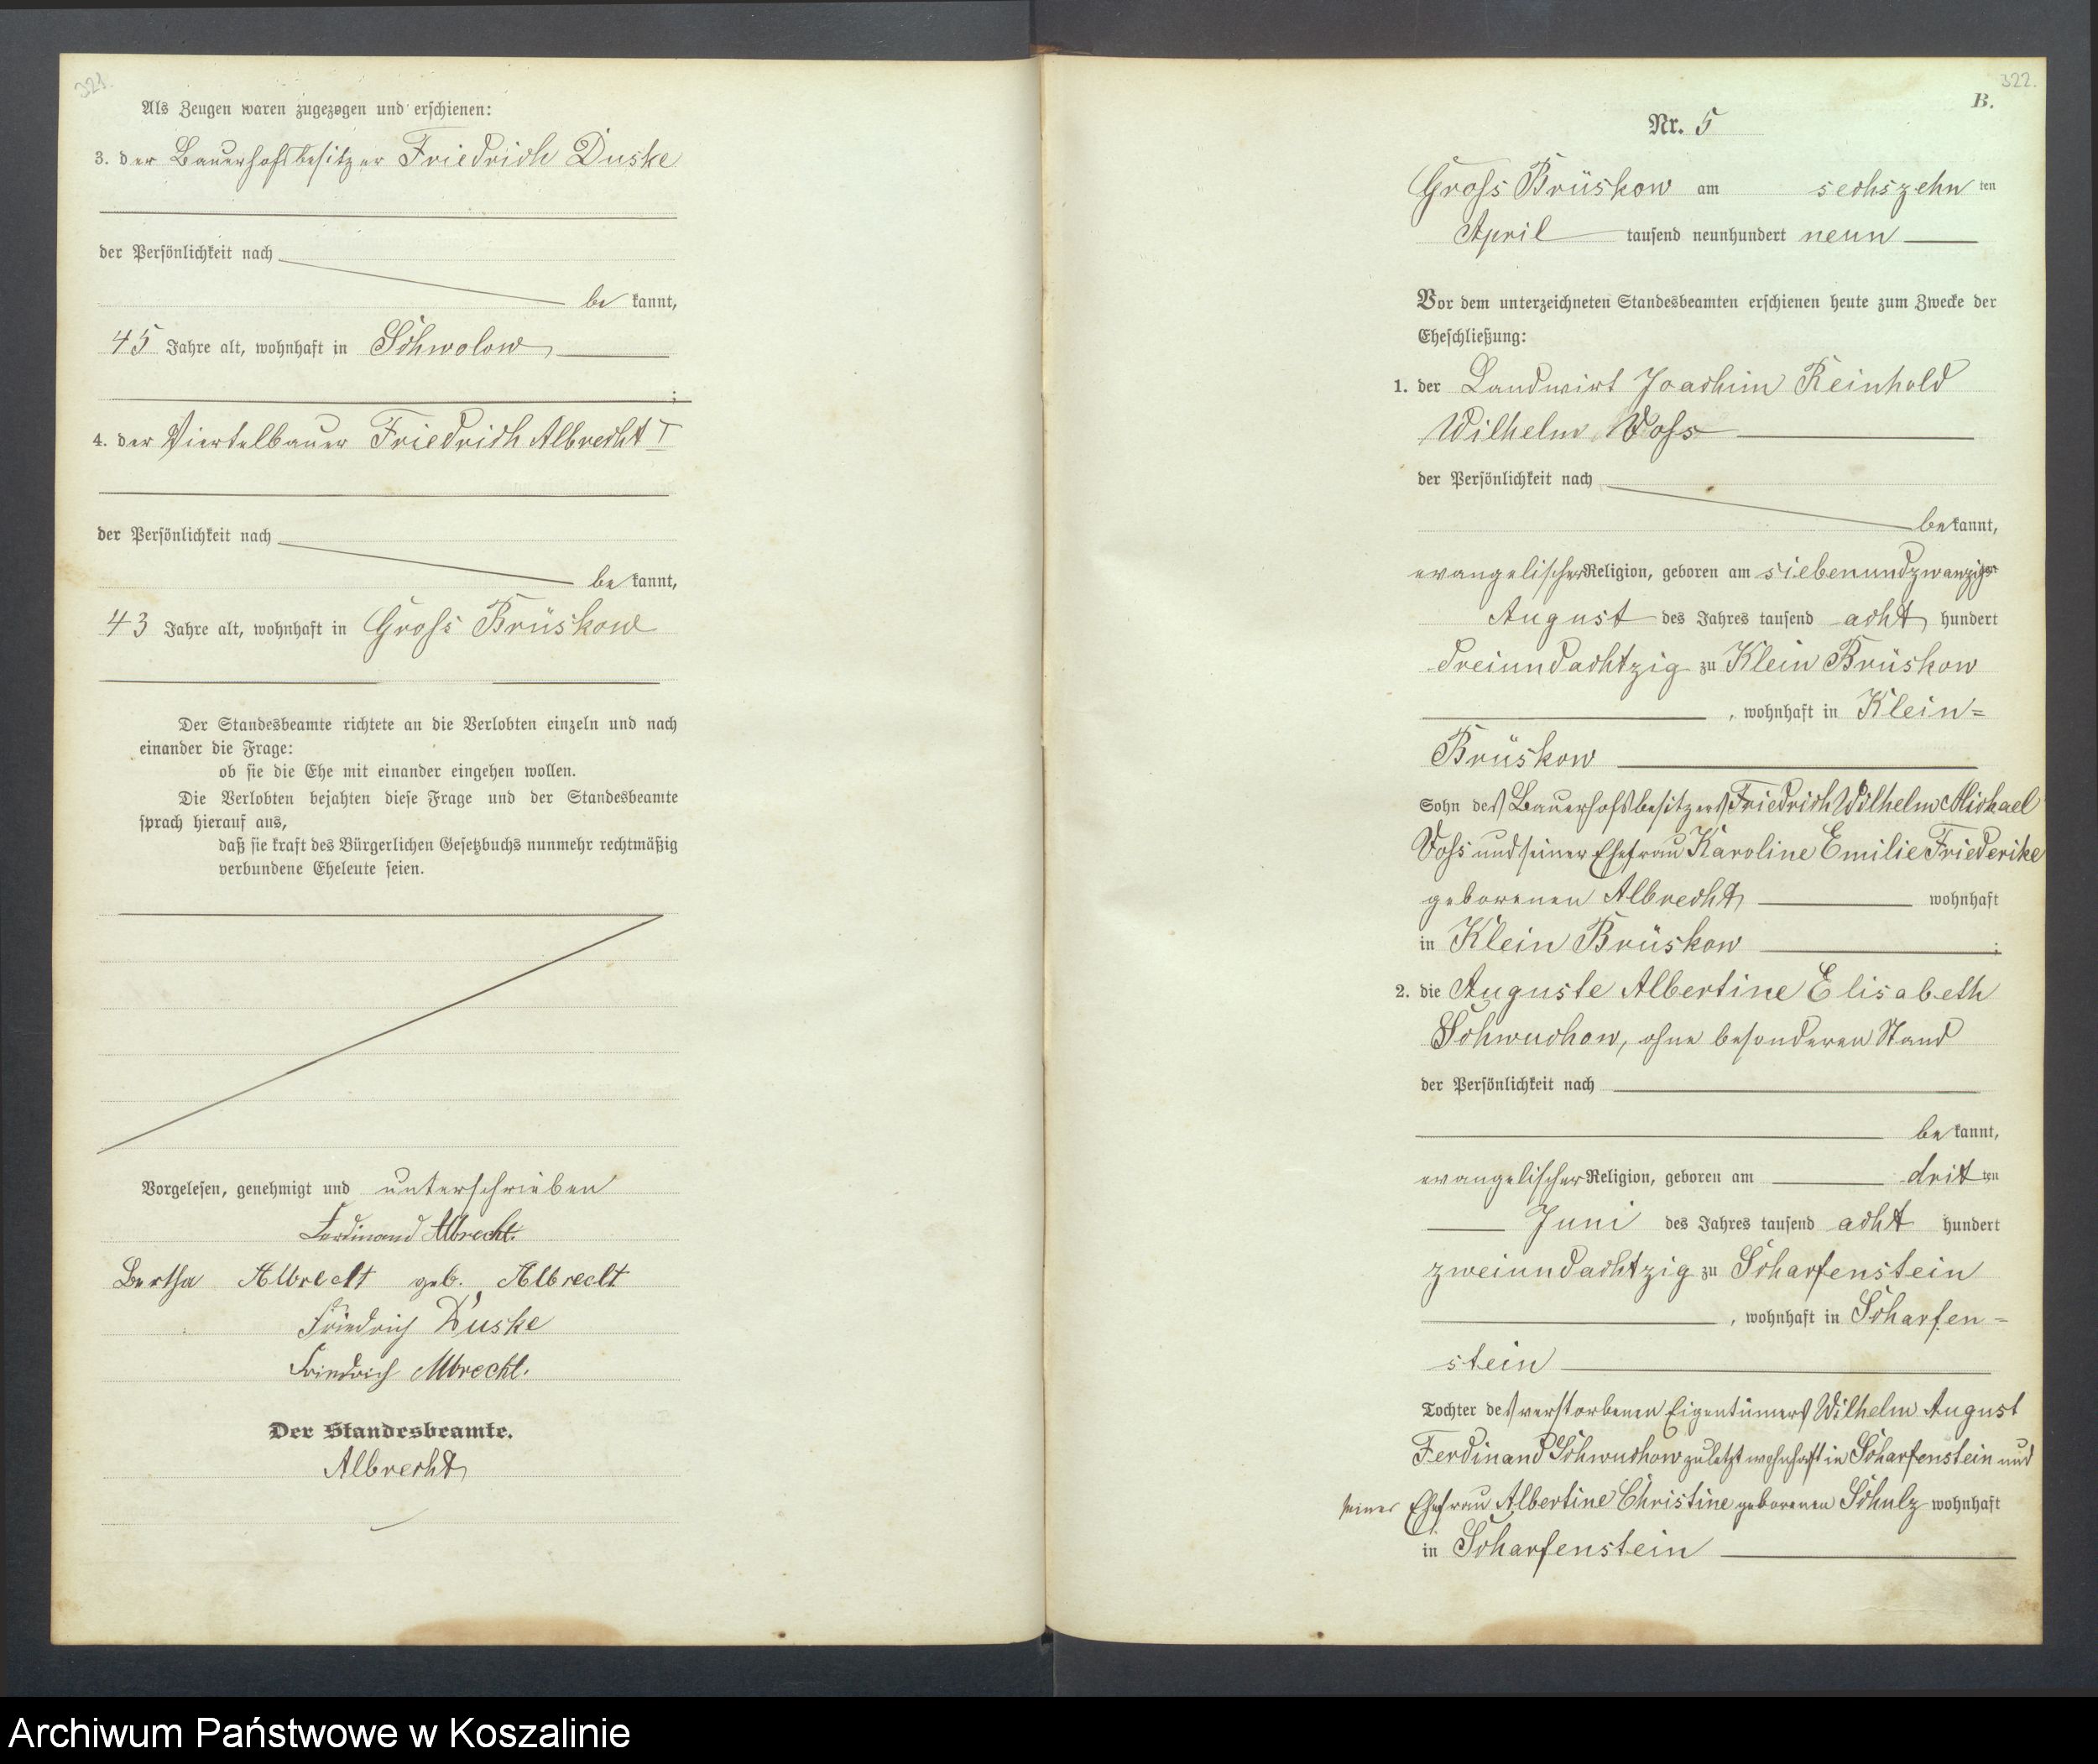 321.
Als Zeugen waren zugezogen und erschienen:
3. der Bauerhofsbesitzer Friedrich Duske
der Persönlichkeit nach
be kannt,
45 Jahre alt, wohnhaft in Schwolow
;
4. der Viertelbauer Friedrich Albrecht I
der Persönlichkeit nach
be kannt,
43 Jahre alt, wohnhaft in Gross Brüskow
Der Standesbeamte richtete an die Verlobten einzeln und nach
einander die Frage:
ob sie die Ehe mit einander eingehen wollen.
Die Verlobten bejahten diese Frage und der Standesbeamte
sprach hierauf aus,
daß sie kraft des Bürgerlichen Gesetzbuchs nunmehr rechtmäßig
verbundene Eheleute seien.
Vorgelesen, genehmigt und unterschrieben
Ferdinand Albrecht.
Bertha Albrecht geb. Albrecht
Friedrich Duske
Friedrich Albrecht.
Der Standesbeamte.
Albrecht
322.
B.
Nr. 5
Gross Brüskow am sechszehn ten
April tausend neunhundert neun
Vor dem unterzeichneten Standesbeamten erschienen heute zum Zwecke der
Eheschließung:
1. der Landwirt Joachim Reinhold
Wilhelm Voss
der Persönlichkeit nach
be kannt,
evangelischer Religion, geboren am siebenundzwanzigsten
August des Jahres tausend acht hundert
dreiundachtzig zu Klein Brüskow
, wohnhaft in Klein=
Brüskow
Sohn des Bauerhofsbesitzers Friedrich Wilhelm Michael
Voss und seiner Ehefrau Karoline Emilie Friederike
geborenen Albrecht wohnhaft
in Klein Brüskow ;
2. die Auguste Albertine Elisabeth
Schwuchow, ohne besonderen Stand
der Persönlichkeit nach
be kannt,
evangelischer Religion, geboren am drit ten
Juni des Jahres tausend acht hundert
zweiundachtzig zu Scharfenstein
, wohnhaft in Scharfen=
stein
Tochter des verstorbenen Eigentümers Wilhelm August
Ferdinand Schwuchow zuletzt wohnhaft in Scharfenstein und
seiner Ehefrau Albertine Christine geborenen Schulz wohnhaft
in Scharfenstein
Archiwum Państwowe w Koszalinie